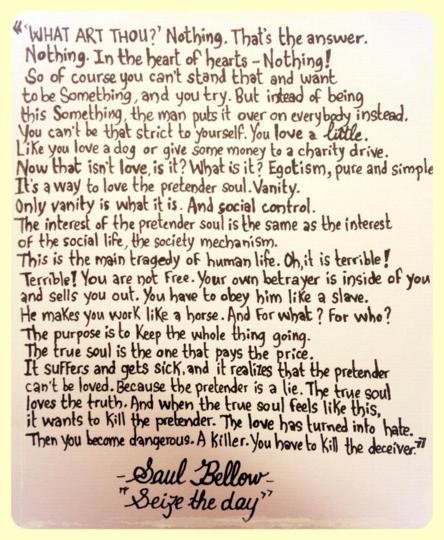 "'WHAT ART THOU?' Nothing. That's the answer.
Nothing. In the heart of hearts - Nothing!
So of course you can't stand that and want
to be Something, and you try. But intead of being
this Something, the man puts it over on everybody instead.
You can't be that strict to yourself. You love a little.
Like you love a dog or give some money to a charity drive.
Now that isn't love, is it? What is it? Egotism, pure and simple
It's a way to love the pretender soul. Vanity.
Only vanity is what it is. And social control.
The interest of the pretender soul is the same as the interest
of the social life, the society mechanism.
This is the main tragedy of human life. Oh, it is terrible!
Terrible! You are not free. Your own betrayer is inside of you
and sells you out. You have to obey him like a slave.
He makes you work like a horse. And for what? For who?
The purpose is to keep the whole thing going.
The true soul is the one that pays the price.
It suffers and gets sick, and it realizes that the pretender
can't be loved. Because the pretender is a lie. The true soul
loves the truth. And when the true soul feels like this,
it wants to kill the pretender. The love has turned into hate.
Then you become dangerous. A killer. You have to kill the deceiver."
-Saul Bellow-
"Seize the day"